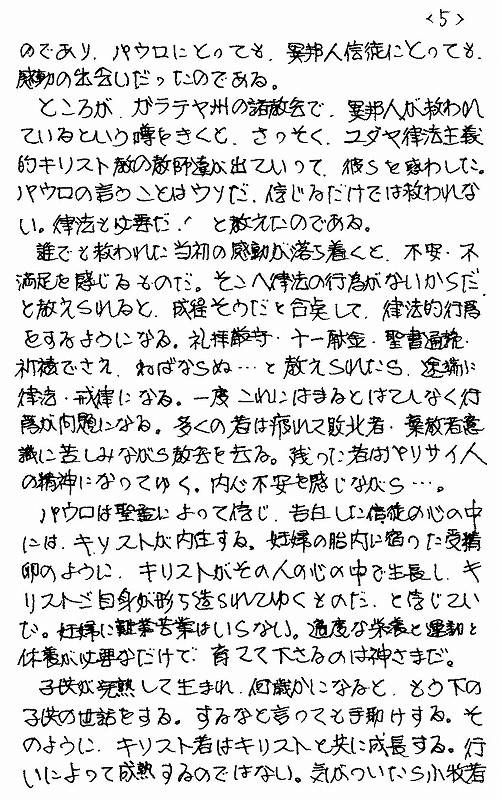 <5>
のであり、パウロにとっても、異邦人信徒にとっても、
感動の出会いだったのである。
ところが、ガラテヤ州の諸教会で、異邦人が救われ
ているという噂をきくと、さっそく、ユダヤ律法主義
的キリスト教の教師達が出ていって、彼らを惑わした。
パウロの言うことはウソだ、信じるだけでは救われな
い。律法も必要だ！と教えたのである。
誰でも救われた当初の感動が落ち着くと、不安・不
満足を感じるものだ。そこへ律法の行為がないからだ、
と教えられると、成程そうだと合点して、律法的行為
をするようになる。礼拝厳守・十一献金・聖書通読・
祈祷でさえ、ねばならぬ…と教えられたら、途端に
律法・戒律になる。一度これにはまるとはてしなく行
為が問題になる。多くの者は疲れて敗北者・棄教者意
識に苦しみながら教会を去る。残った者はパリサイ人
の精神になってゆく。内心不安を感じながら…。
パウロは聖霊によって信じ、告白した信徒の心の中
には、キリストが内住する。妊婦の胎内に宿った受精
卵のように、キリストがその人の心の中で生長し、キ
リストご自身が形ち造られてゆくものだ、と信じてい
た。妊婦に難業苦業はいらない。適度な栄養と運動と
休養が必要なだけで、育てて下さるのは神さまだ。
子供が して生まれ、何歳かになると、もう下の
子供の世話をする。するなと言っても手助けする。そ
のように、キリスト者はキリストと共に成長する。行
いによって成熟するのではない。気がついたら小牧者